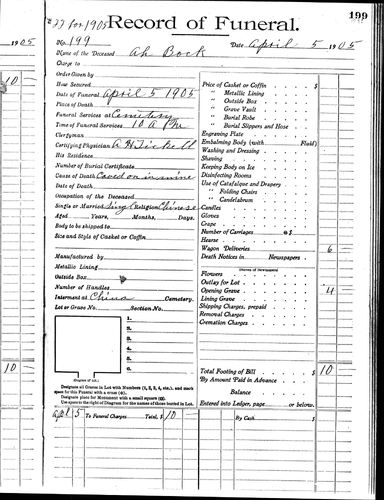 #27 for 1905
Record of Funeral.
199
1905
No. 199
Name of the Deceased Ah Bock
Date April 5 1905
Charge to
Order Given by
How Secured
Date of Funeral April 5 1905
Place of Death
Funeral Services at Cemetery
Time of Funeral Services 10 A
Clergyman
Certifying Physician
His Residence
Number of Burial Certificate
Cause of Death Caved on in mine
Date of Death
Occupation of the Deceased
Single or Married Single Religion Chinese
Aged Years, Months, Days.
Body to be shipped to
Size and Style of Casket or Coffin
Manufactured by
Metallic Lining
Outside Box
Number of Handles
Interment at China Cemetery.
Lot or Grave No. Section No.
1.
2.
3.
4.
5.
6.
(Diagram of Lot.)
Designate all Graves in Lot with Numbers (1, 2, 3, 4, etc.), and mark
space for this Funeral with a cross (x).
Designate place for Monument with a small square
Use space to the right of Diagram for the names of those buried in Lot.
Price of Casket or Coffin $
" Metallic Lining
" Outside Box
" Grave Vault
" Burial Robe
" Burial Slippers and Hose
Engraving Plate
Embalming Body (with Fluid)
Washing and Dressing
Shaving
Keeping Body on Ice
Disinfecting Rooms
Use of Catafalque and Drapery
" Folding Chairs
" Candelabrum
Candles
Gloves
Crape
Number of Carriages @ $
Hearse
Wagon Deliveries 6
Death Notices in Newspapers
Flowers
Outlay for Lot
Opening Grave 4
Lining Grave
Shipping Charges, prepaid
Removal Charges
Cremation Charges
Total Footing of Bill $ 10
By Amount Paid in Advance
Balance
Entered into Ledger, page or below.
Apl 5 To Funeral Charges Total, $ 10
By Cash $
10
10